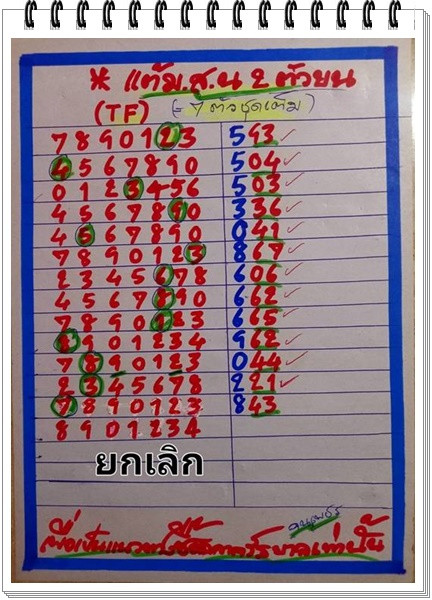 * แต้ม.สูน 2 ตัวบน
(TF) (= 7 ตัวชุดเต็ม)
7 8 9 0 1 2 3 593 ✓
4 5 6 7 8 9 0 504 ✓
0 1 2 3 4 5 6 503 ✓
4 5 6 7 8 9 0 336 ✓
4 5 6 7 8 9 0 041 ✓
7 8 9 0 1 2 3 867 ✓
2 3 4 5 6 7 8 606 ✓
4 5 6 7 8 9 0 662 ✓
7 8 9 0 1 2 3 665 ✓
8 9 0 1 2 3 4 962 ✓
7 8 9 0 1 2 3 044 ✓
2 3 4 5 6 7 8 221 ✓
7 8 9 0 1 2 3 843
8 9 0 1 2 3 4
ยกเลิก
เพื่อเป็นแนวทาง เท่านั้น